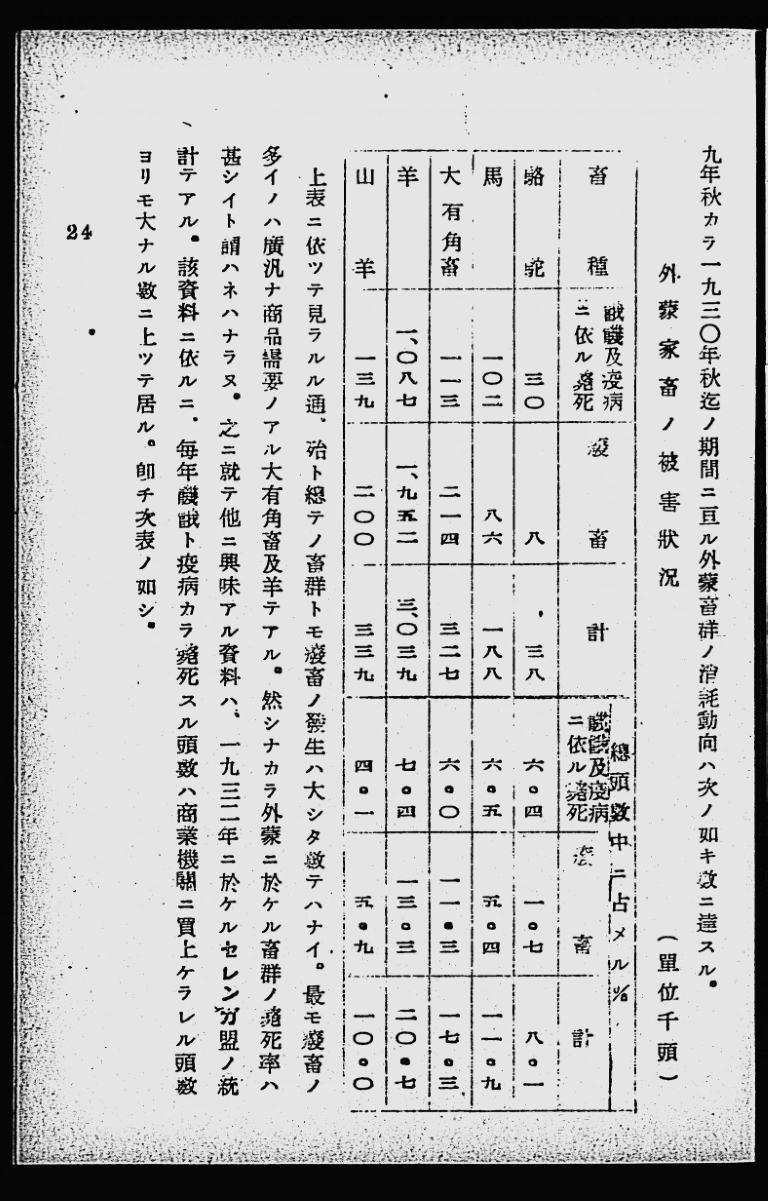 九年秋カラ一九三〇年秋迄ノ期間ニ亘ル外蒙畜群ノ消耗動向ハ次ノ如キ數ニ達スル。
外蒙家畜ノ被害狀況
(單位千頭)
總頭數中ニ占メル%
畜種
饑餓及疫病ニ依ル斃死
廢畜
計
饑餓及疫病ニ依ル斃死
廢畜
計
駱駝 三〇 八 三八 六。四 一。七 八。一
馬 一〇二 八六 一八八 六。五 五。四 一一。九
大有角畜 一一三 二一四 三二七 六。〇 一一。三 一七。三
羊 一、〇八七 一、九五二 三、〇三九 七。四 一三。三 二〇。七
山羊 一三九 二〇〇 三三九 四。一 五。九 一〇。〇
上表ニ依ツテ見ラルル通、殆ト總テノ畜群トモ廢畜ノ發生ハ大シタ數テハナイ。最モ廢畜ノ
多イノハ廣汎ナ商品需要ノアル大有角畜及羊テアル。然シナカラ外蒙ニ於ケル畜群ノ斃死率ハ
甚シイト謂ハネハナラヌ。之ニ就テ他ニ興味アル資料ハ、一九三二年ニ於ケルセレンガ盟ノ統
計テアル。該資料ニ依ルニ、每年饑餓ト疫病カラ斃死スル頭數ハ商業機關ニ買上ケラレル頭數
ヨリモ大ナル數ニ上ツテ居ル。卽チ次表ノ如シ。
24